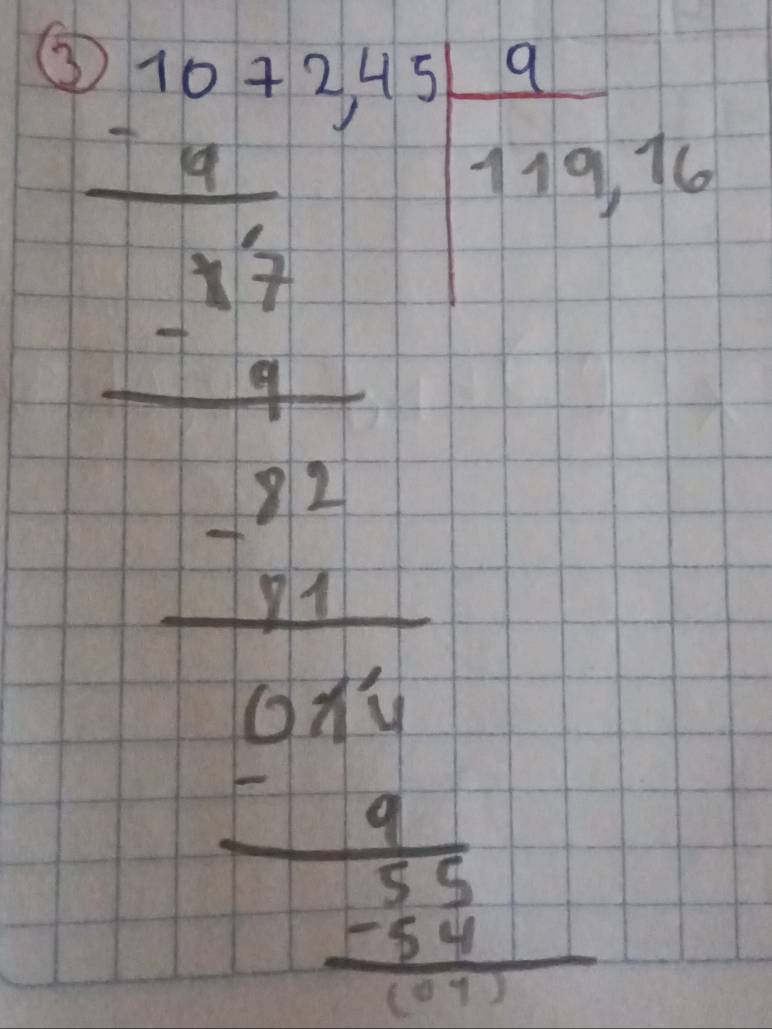 ③ 1072,45 9
- 9 119,16
17
- 9
82
- 81
014
- 9
55
- 54
(01)